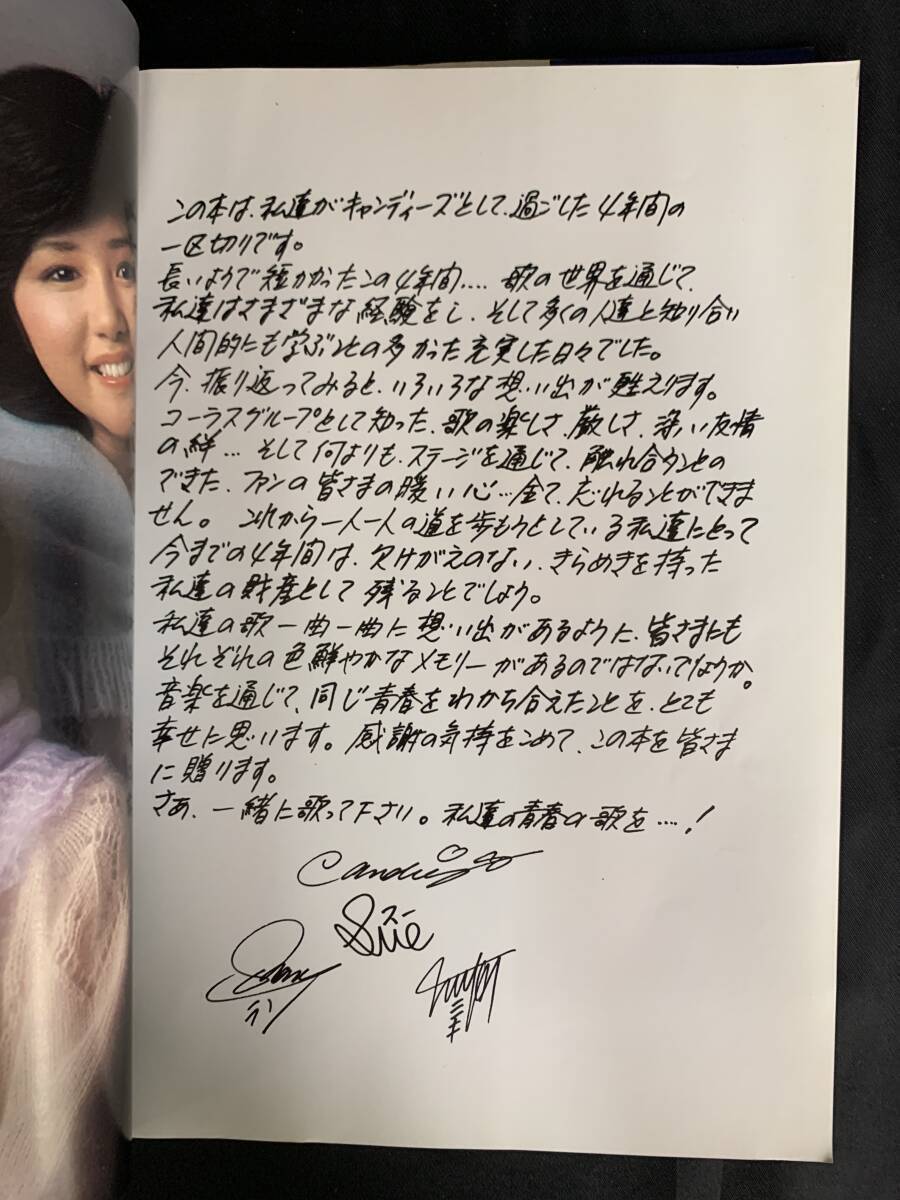 この本は、私達がキャンディーズとして、過ごした4年間の
一区切りです。
長いようで短かかったこの4年間.... 歌の世界を通じて、
私達はさまざまな経験をし、そして多くの人達と知り合い
人間的にも学ぶことの多かった充実した日々でした。
今、振り返ってみると、いろいろな想い出が甦えります。
コーラスグループとして知った、歌の楽しさ、厳しさ、深い友情
の絆... そして何よりも、ステージを通じて、触れ合うことの
できた、ファンの皆さまの暖い心...全て、忘れることができま
せん。これから一人一人の道を歩もうとしている私達にとって
今までの4年間は、欠けがえのない、きらめきを持った
私達の財産として残ることでしょう。
私達の歌一曲一曲に想い出があるように、皆さまにも
それぞれの色鮮やかなメモリーがあるのではないでしょうか。
音楽を通じて、同じ青春をわかち合えたことを、とても
幸せに思います。感謝の気持をこめて、この本を皆さま
に贈ります。
さあ、一緒に歌って下さい。私達の青春の歌を....!
Candies
スー
Sue
ラン
ミキ